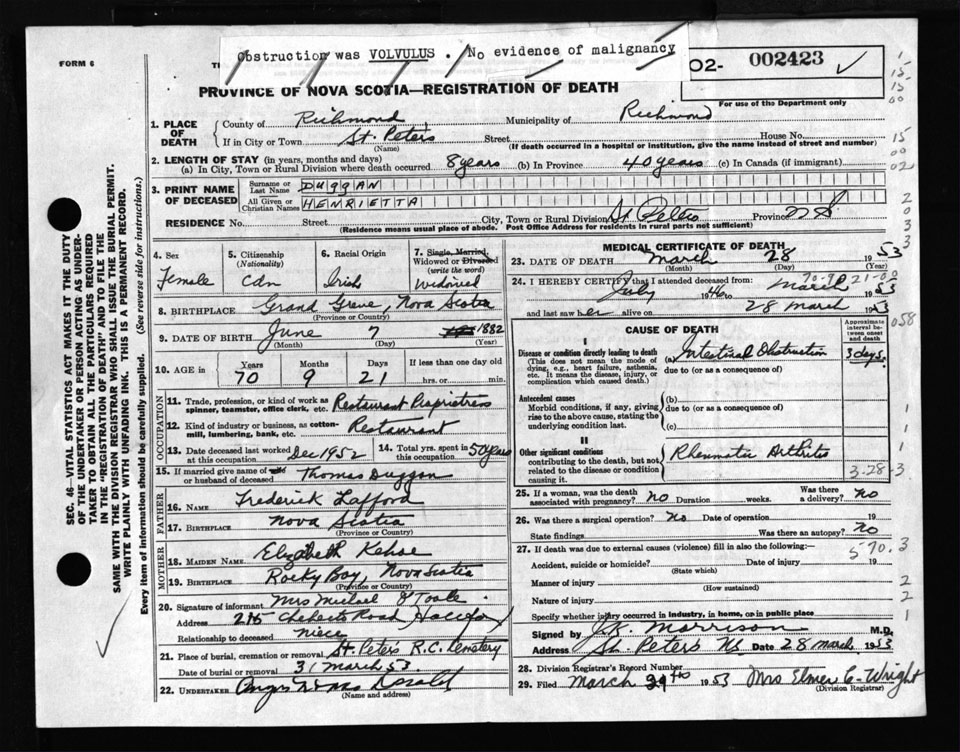 Obstruction was VOLVULUS . No evidence of malignancy
FORM 6
O2- 002423
PROVINCE OF NOVA SCOTIA—REGISTRATION OF DEATH
For use of the Department only
1. PLACE OF DEATH
County of Richmond Municipality of Richmond
If in City or Town St. Peters Street House No.
(Name) (If death occurred in a hospital or institution, give the name instead of street and number)
2. LENGTH OF STAY (in years, months and days)
(a) In City, Town or Rural Division where death occurred 8 years (b) In Province 40 years (c) In Canada (if immigrant)
3. PRINT NAME OF DECEASED
Surname or Last Name DUGGAN
All Given or Christian Names HENRIETTA
RESIDENCE No. Street City, Town or Rural Division St. Peters Province N.S.
(Residence means usual place of abode. Post Office Address for residents in rural parts not sufficient)
4. Sex Female
5. Citizenship (Nationality) Cdn
6. Racial Origin Irish
7. Single, Married, Widowed or Divorced (write the word) Widowed
8. BIRTHPLACE Grand Greve, Nova Scotia
(Province or Country)
9. DATE OF BIRTH June 7 1882
(Month) (Day) (Year)
10. AGE in Years Months Days If less than one day old
70 9 21 hrs. or min.
OCCUPATION
11. Trade, profession, or kind of work as spinner, teamster, office clerk, etc. Restaurant Proprietress
12. Kind of industry or business, as cotton-mill, lumbering, bank, etc. Restaurant
13. Date deceased last worked at this occupation Dec 1952
14. Total yrs. spent in this occupation 50 years
15. If married give name of wife or husband of deceased Thomas Duggan
FATHER
16. NAME Frederick Lafford
17. BIRTHPLACE Nova Scotia
(Province or Country)
MOTHER
18. MAIDEN NAME Elizabeth Kehoe
19. BIRTHPLACE Rocky Bay, Nova Scotia
(Province or Country)
20. Signature of informant Mrs Michael O'Toole
Address 215 Chebucto Road Halifax
Relationship to deceased niece
21. Place of burial, cremation or removal St. Peters R.C. Cemetery
Date of burial or removal 31 March 53
22. UNDERTAKER
(Name and address)
MEDICAL CERTIFICATE OF DEATH
23. DATE OF DEATH March 28 1953
(Month) (Day) (Year)
24. I HEREBY CERTIFY that I attended deceased from:
July 1946 to March 1953
and last saw her alive on 28 March 1953
CAUSE OF DEATH
Approximate interval between onset and death
I
Disease or condition directly leading to death
(This does not mean the mode of dying, e.g., heart failure, asthenia, etc. It means the disease, injury, or complication which caused death.)
(a) Intestinal Obstruction 3 days.
due to (or as a consequence of)
Antecedent causes
Morbid conditions, if any, giving rise to the above cause, stating the underlying condition last.
(b)
due to (or as a consequence of)
(c)
II
Other significant conditions
contributing to the death, but not related to the disease or condition causing it.
Rheumatic Arthritis
3-28-3
25. If a woman, was the death associated with pregnancy? No Duration weeks. Was there a delivery? No
26. Was there a surgical operation? No Date of operation 19
State findings Was there an autopsy? No
27. If death was due to external causes (violence) fill in also the following:—
570.3
Accident, suicide or homicide? Date of injury 19
(State which)
Manner of injury
(How sustained)
Nature of injury
Specify whether injury occurred in industry, in home, or in public place
Signed by Morrison M.D.
Address St. Peters N.S. Date 28 March 1953
28. Division Registrar's Record Number
29. Filed March 1953 Mrs Elmer C. Wright
(Division Registrar)
SEC. 46—VITAL STATISTICS ACT MAKES IT THE DUTY
OF THE UNDERTAKER OR PERSON ACTING AS UNDER-
TAKER TO OBTAIN ALL THE PARTICULARS REQUIRED
IN THE "REGISTRATION OF DEATH" AND TO FILE THE
SAME WITH THE DIVISION REGISTRAR WHO SHALL ISSUE THE BURIAL PERMIT.
WRITE PLAINLY WITH UNFADING INK. THIS IS A PERMANENT RECORD.
Every item of information should be carefully supplied. (See reverse side for instructions.)